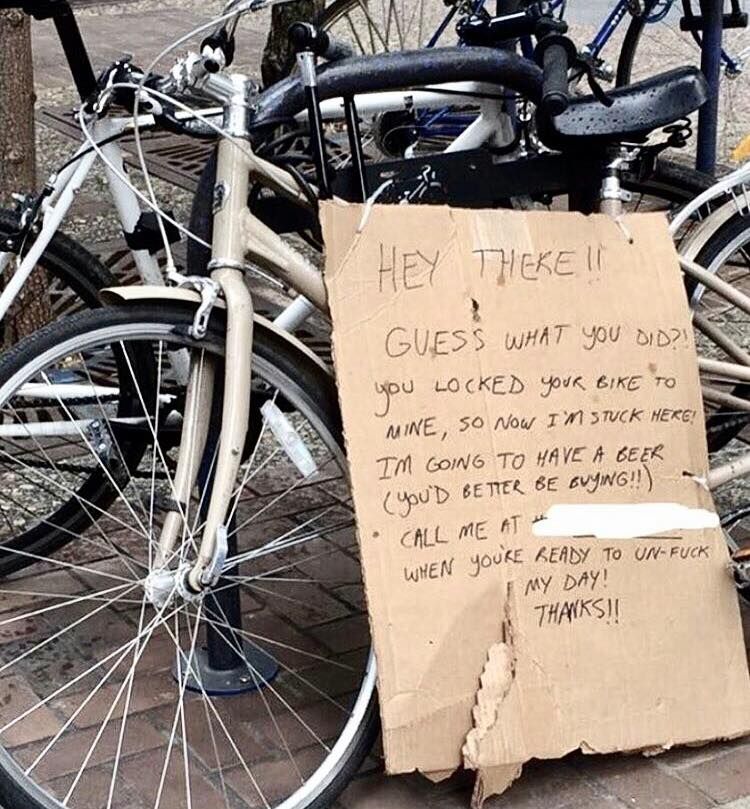 HEY THERE!!
GUESS WHAT YOU DID?!
YOU LOCKED YOUR BIKE TO
MINE, SO NOW I'M STUCK HERE!
IM GOING TO HAVE A BEER
(YOU'D BETTER BE BUYING!!)
CALL ME AT #
WHEN YOU'RE READY TO UN-FUCK
MY DAY!
THANKS!!